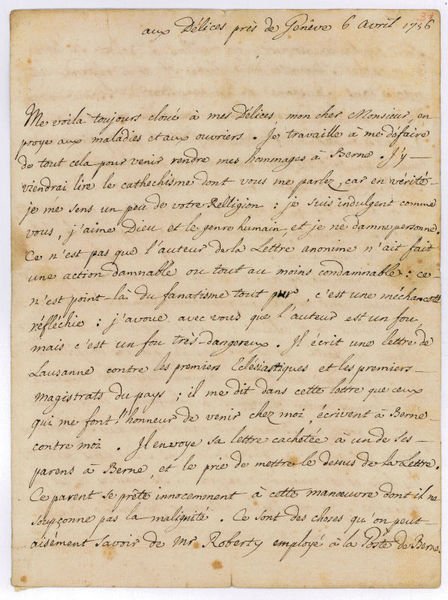 aux Délices près de Genêve 6 avril 1756
Me voila toujours cloué à mes Délices, mon cher Monsieur, en
proye aux maladies et aux ouvriers. Je travaille à me défaire
de tout cela pour venir rendre mes hommages à Berne. J'y
viendrai lire le cathechisme dont vous me parlez, car en vérité
je me sens un peu de votre Relligion: je suis indulgent comme
vous, j'aime Dieu et le genre humain, et je ne damne personne.
Ce n'est pas que l'auteur de la Lettre anonime n'ait fait
une action damnable ou tout au moins condamnable: ce
n'est point là du fanatisme tout pur, c'est une méchanceté
réflechie: j'avoue avec vous que l'auteur est un fou
mais c'est un fou très-dangereux. Il écrit une lettre de
Lausanne contre les premiers Eclésiastiques et les premiers
magistrats du pays; il me dit dans cette lettre que ceux
qui me font l'honneur de venir chez moi écrivent à Berne
contre moi. Il envoye sa lettre cachetée à un de ses
parens à Berne, et le prie de mettre le dessus de la Lettre.
Ce parent se prête innocemment à cette manœuvre dont il ne
soupçonne pas la malignité. Ce sont des choses qu'on peut
aisément savoir de Mr Roberty employé à la Poste de Berne.